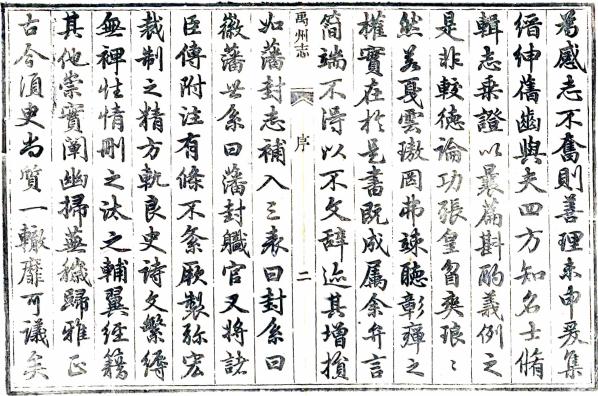 為感志不奮則善理未申爰集
縉紳舊齒與夫四方知名士脩
輯志乘證以曩篇斟酌義例之
是非較德論功張皇留奭琅〻
然若戛雲璈罔弗竦聽彰癉之
權實在於是書既成属余弁言
簡端不得以不文辭迹其增損
禹州志
序
二
如藩封志補入三表曰封系曰
徽藩世系曰藩封職官又將諸
臣傳附注有條不紊厥製弥宏
裁制之精方軌良史詩文繁縟
無裨性情刪之汰之輔翼經籍
其他崇實闡幽掃蕪穢歸雅正
古今須史尚質一轍靡可議矣